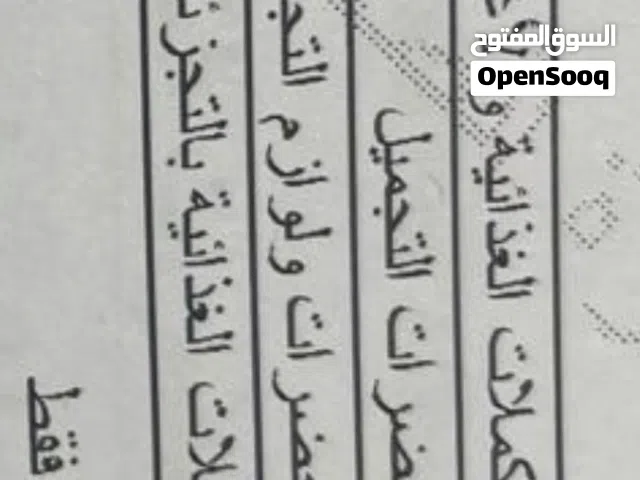 السوق المفتوح
OpenSooq
كملات الغذائية و
ضرات التجميل
حضرات ولوازم التج
لات الغذائية بالتجزئ
فقط